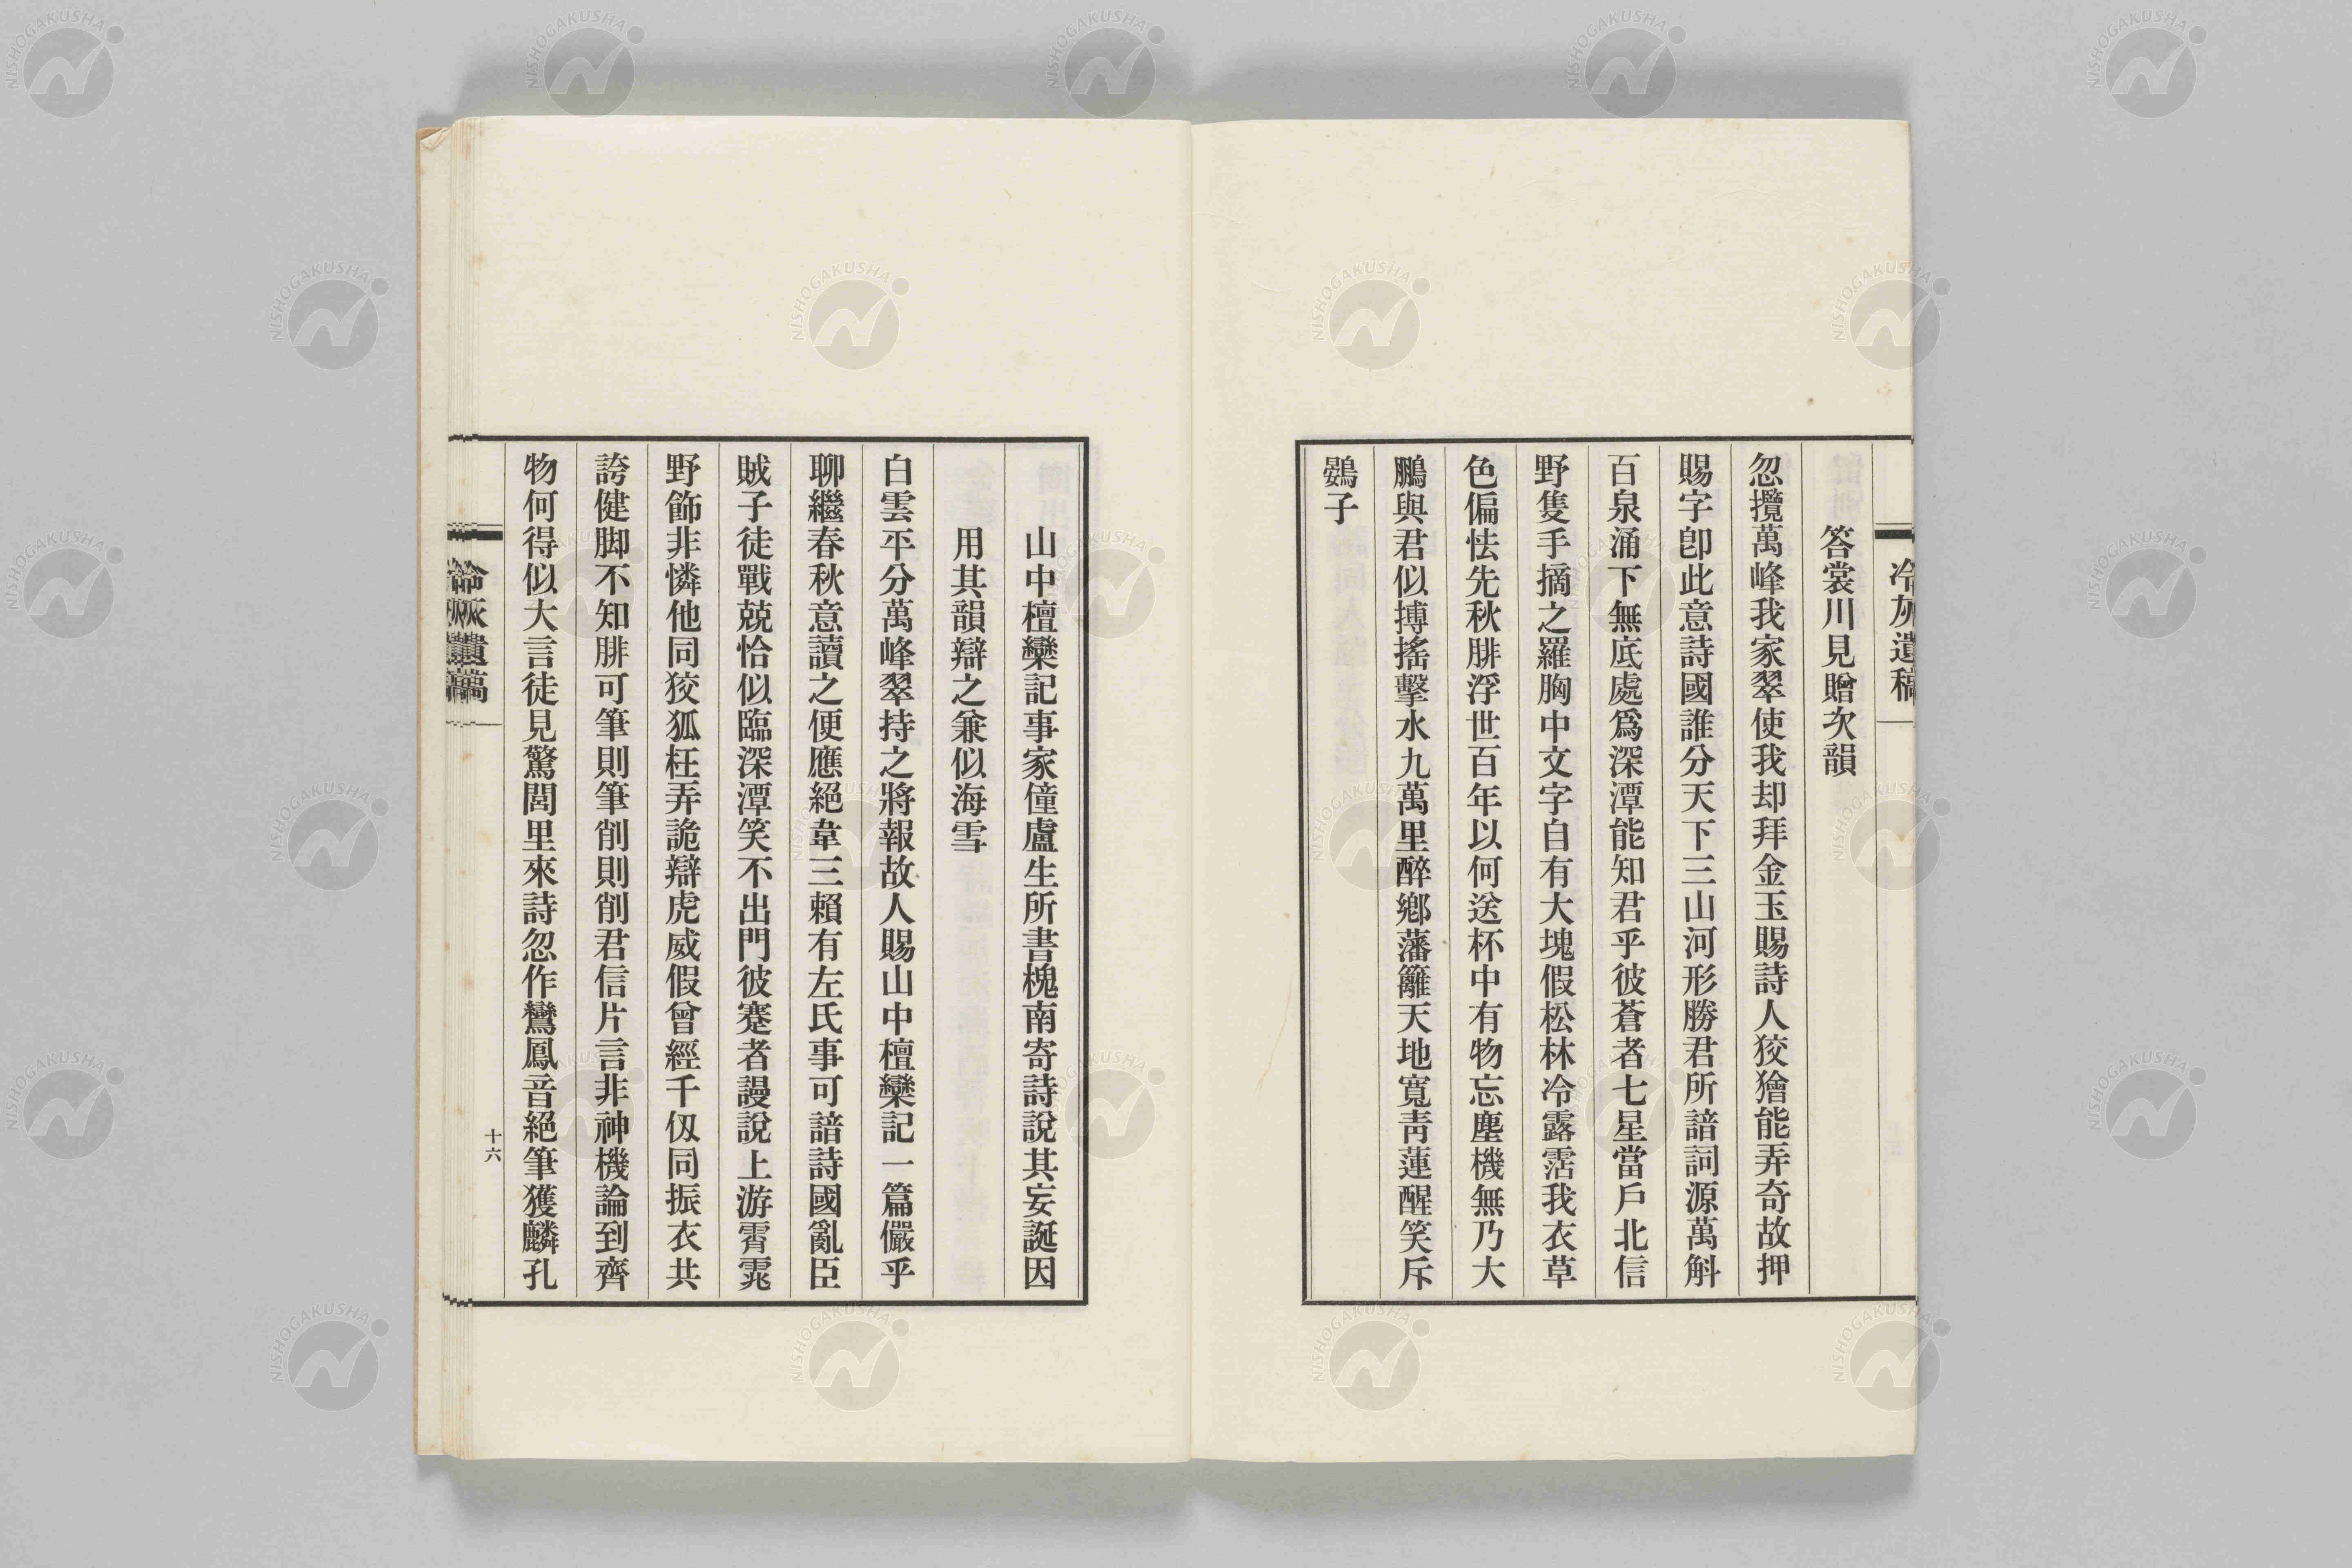 冷灰遺稿
答裳川見贈次韻
忽攬萬峰我家翠使我却拜金玉賜詩人狡獪能弄奇故押
賜字卽此意詩國誰分天下三山河形勝君所諳詞源萬斛
百泉涌下無底處爲深潭能知君乎彼蒼者七星當戶北信
野隻手摘之羅胸中文字自有大塊假松林冷露霑我衣草
色偏怯先秋腓浮世百年以何送杯中有物忘塵機無乃大
鵬與君似摶搖擊水九萬里醉鄕藩籬天地寬靑蓮醒笑斥
鷃子
山中檀欒記事家僮盧生所書槐南寄詩說其妄誕因
用其韻辯之兼似海雪
白雲平分萬峰翠持之將報故人賜山中檀欒記一篇儼乎
聊繼春秋意讀之便應絕韋三賴有左氏事可諳詩國亂臣
賊子徒戰兢恰似臨深潭笑不出門彼蹇者謾說上游霄霓
野飾非憐他同狡狐枉弄詭辯虎威假曾經千仭同振衣共
誇健脚不知腓可筆則筆削則削君信片言非神機論到齊
物何得似大言徒見驚閭里來詩忽作鸞鳳音絕筆獲麟孔
冷灰遺稿
十六
NISHOGAKUSHA